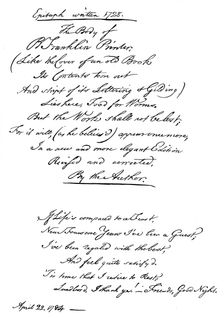 Epitaph written 1728.
The Body of
B Franklin Printer,
(Like the Cover of an old Book
Its Contents torn out
And stript of its Lettering & Gilding)
Lies here, Food for Worms.
But the Work shall not be lost;
For it will, (as he believ'd) appear once more,
In a new and more elegant Edition
Revised and corrected,
By the Author.
If Life's compared to a Feast,
Near Fourscore Years I've been a Guest,
I've been regaled with the best,
And feel quite satisfyd.
'Tis time that I retire to Rest;
Landlord, I thank ye! — Friends, Good Night.
April 22, 1784